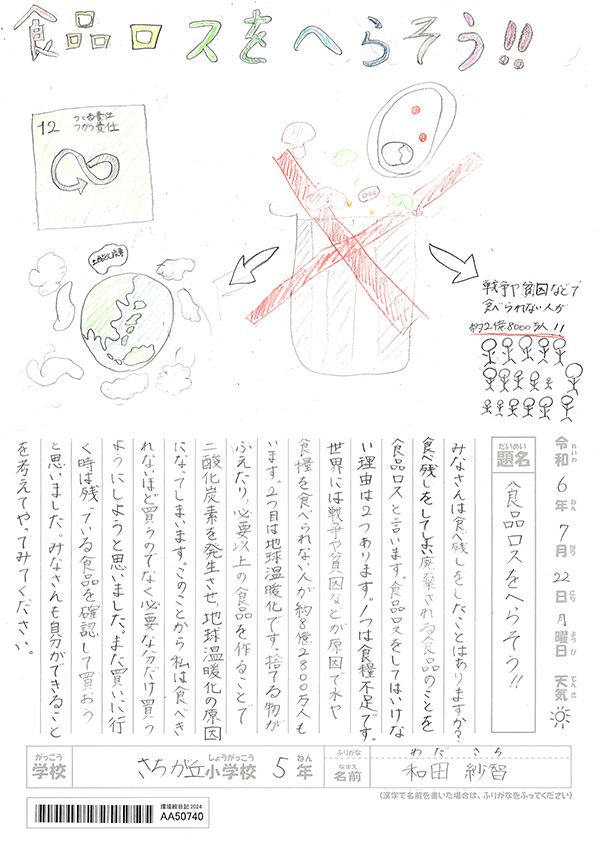 食品ロスをへらそう!!
12 つくる責任
つかう責任
二酸化炭素
戦争や貧困などで
食べられない人が
約2億8000万人!!
れいわ ねん がつ にち ようび てんき
令和6年7月22日月曜日 天気
だいめい
題名 食品ロスをへらそう!!
みなさんは食べ残しをしたことはありますか?
食べ残しをしてしまい廃棄される食品のことを
食品ロスと言います。食品ロスをしてはいけな
い理由は2つあります。1つは食糧不足です。
世界には戦争や貧困などが原因で水や
食糧を食べられない人が約8億2800万人も
います。2つ目は地球温暖化です。捨てる物が
ふえたり、必要以上の食品を作ることで
二酸化炭素を発生させ、地球温暖化の原因
になってしまいます。このことから私は食べき
れないほど買うのでなく必要な分だけ買う
ようにしようと思いました。また買いに行
く時は残っている食品を確認して買おう
と思いました。みなさんも自分ができること
を考えてやってみてください。
がっこう しょうがっこう ねん
学校 さちが丘小学校 5年
ふりがな わだ さち
なまえ
名前 和田 紗智
(漢字で名前を書いた場合は、ふりがなをふってください)
環境絵日記2024
AA50740